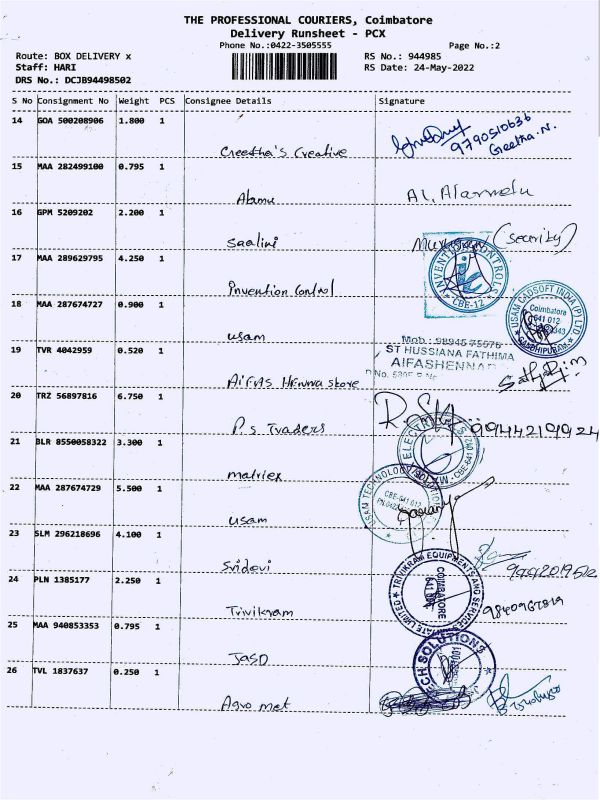 THE PROFESSIONAL COURIERS, Coimbatore
Delivery Runsheet - PCX
Phone No.:0422-3505555 Page No.:2
Route: BOX DELIVERY x RS No.: 944985
Staff: HARI RS Date: 24-May-2022
DRS No.: DCJB94498502
S No Consignment No Weight PCS Consignee Details Signature
14 GOA 500208906 1.800 1
9790510636
Geetha.N.
Creetha's Creative
15 MAA 282499100 0.795 1
Alamu Al. Alamelu
16 GPM 5209202 2.200 1
Saalini (Security)
17 MAA 289629795 4.250 1
INVENTION CONTROLS
CBE-12
Invention Control
18 MAA 287674727 0.900 1
USAM CADSOFT INDIA (P) LTD
Coimbatore
641 012
GANDHIPURAM
usam
19 TVR 4042959 0.520 1
Mob: 9894575576
ST HUSSIANA FATHIMA
AIFASHENNA
AIFAS Henna Store
20 TRZ 56897816 6.750 1
P.S Traders 9944219424
21 BLR 8550058322 3.300 1
CBE-641 012
matriex
22 MAA 287674729 5.500 1
USAM TECHNOLOGY
CBE-641 012
usam
23 SLM 296218696 4.100 1
Sridevi
24 PLN 1385177 2.250 1
TRIVIKRAM EQUIPMENTS AND SERVICES PRIVATE LIMITED
COIMBATORE
9840967819
Trivikram
25 MAA 940853353 0.795 1
TECH SOLUTIONS
JASD
26 TVL 1837637 0.250 1
Agro met